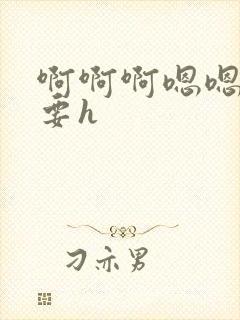 啊啊啊嗯嗯
要h
刁亦男